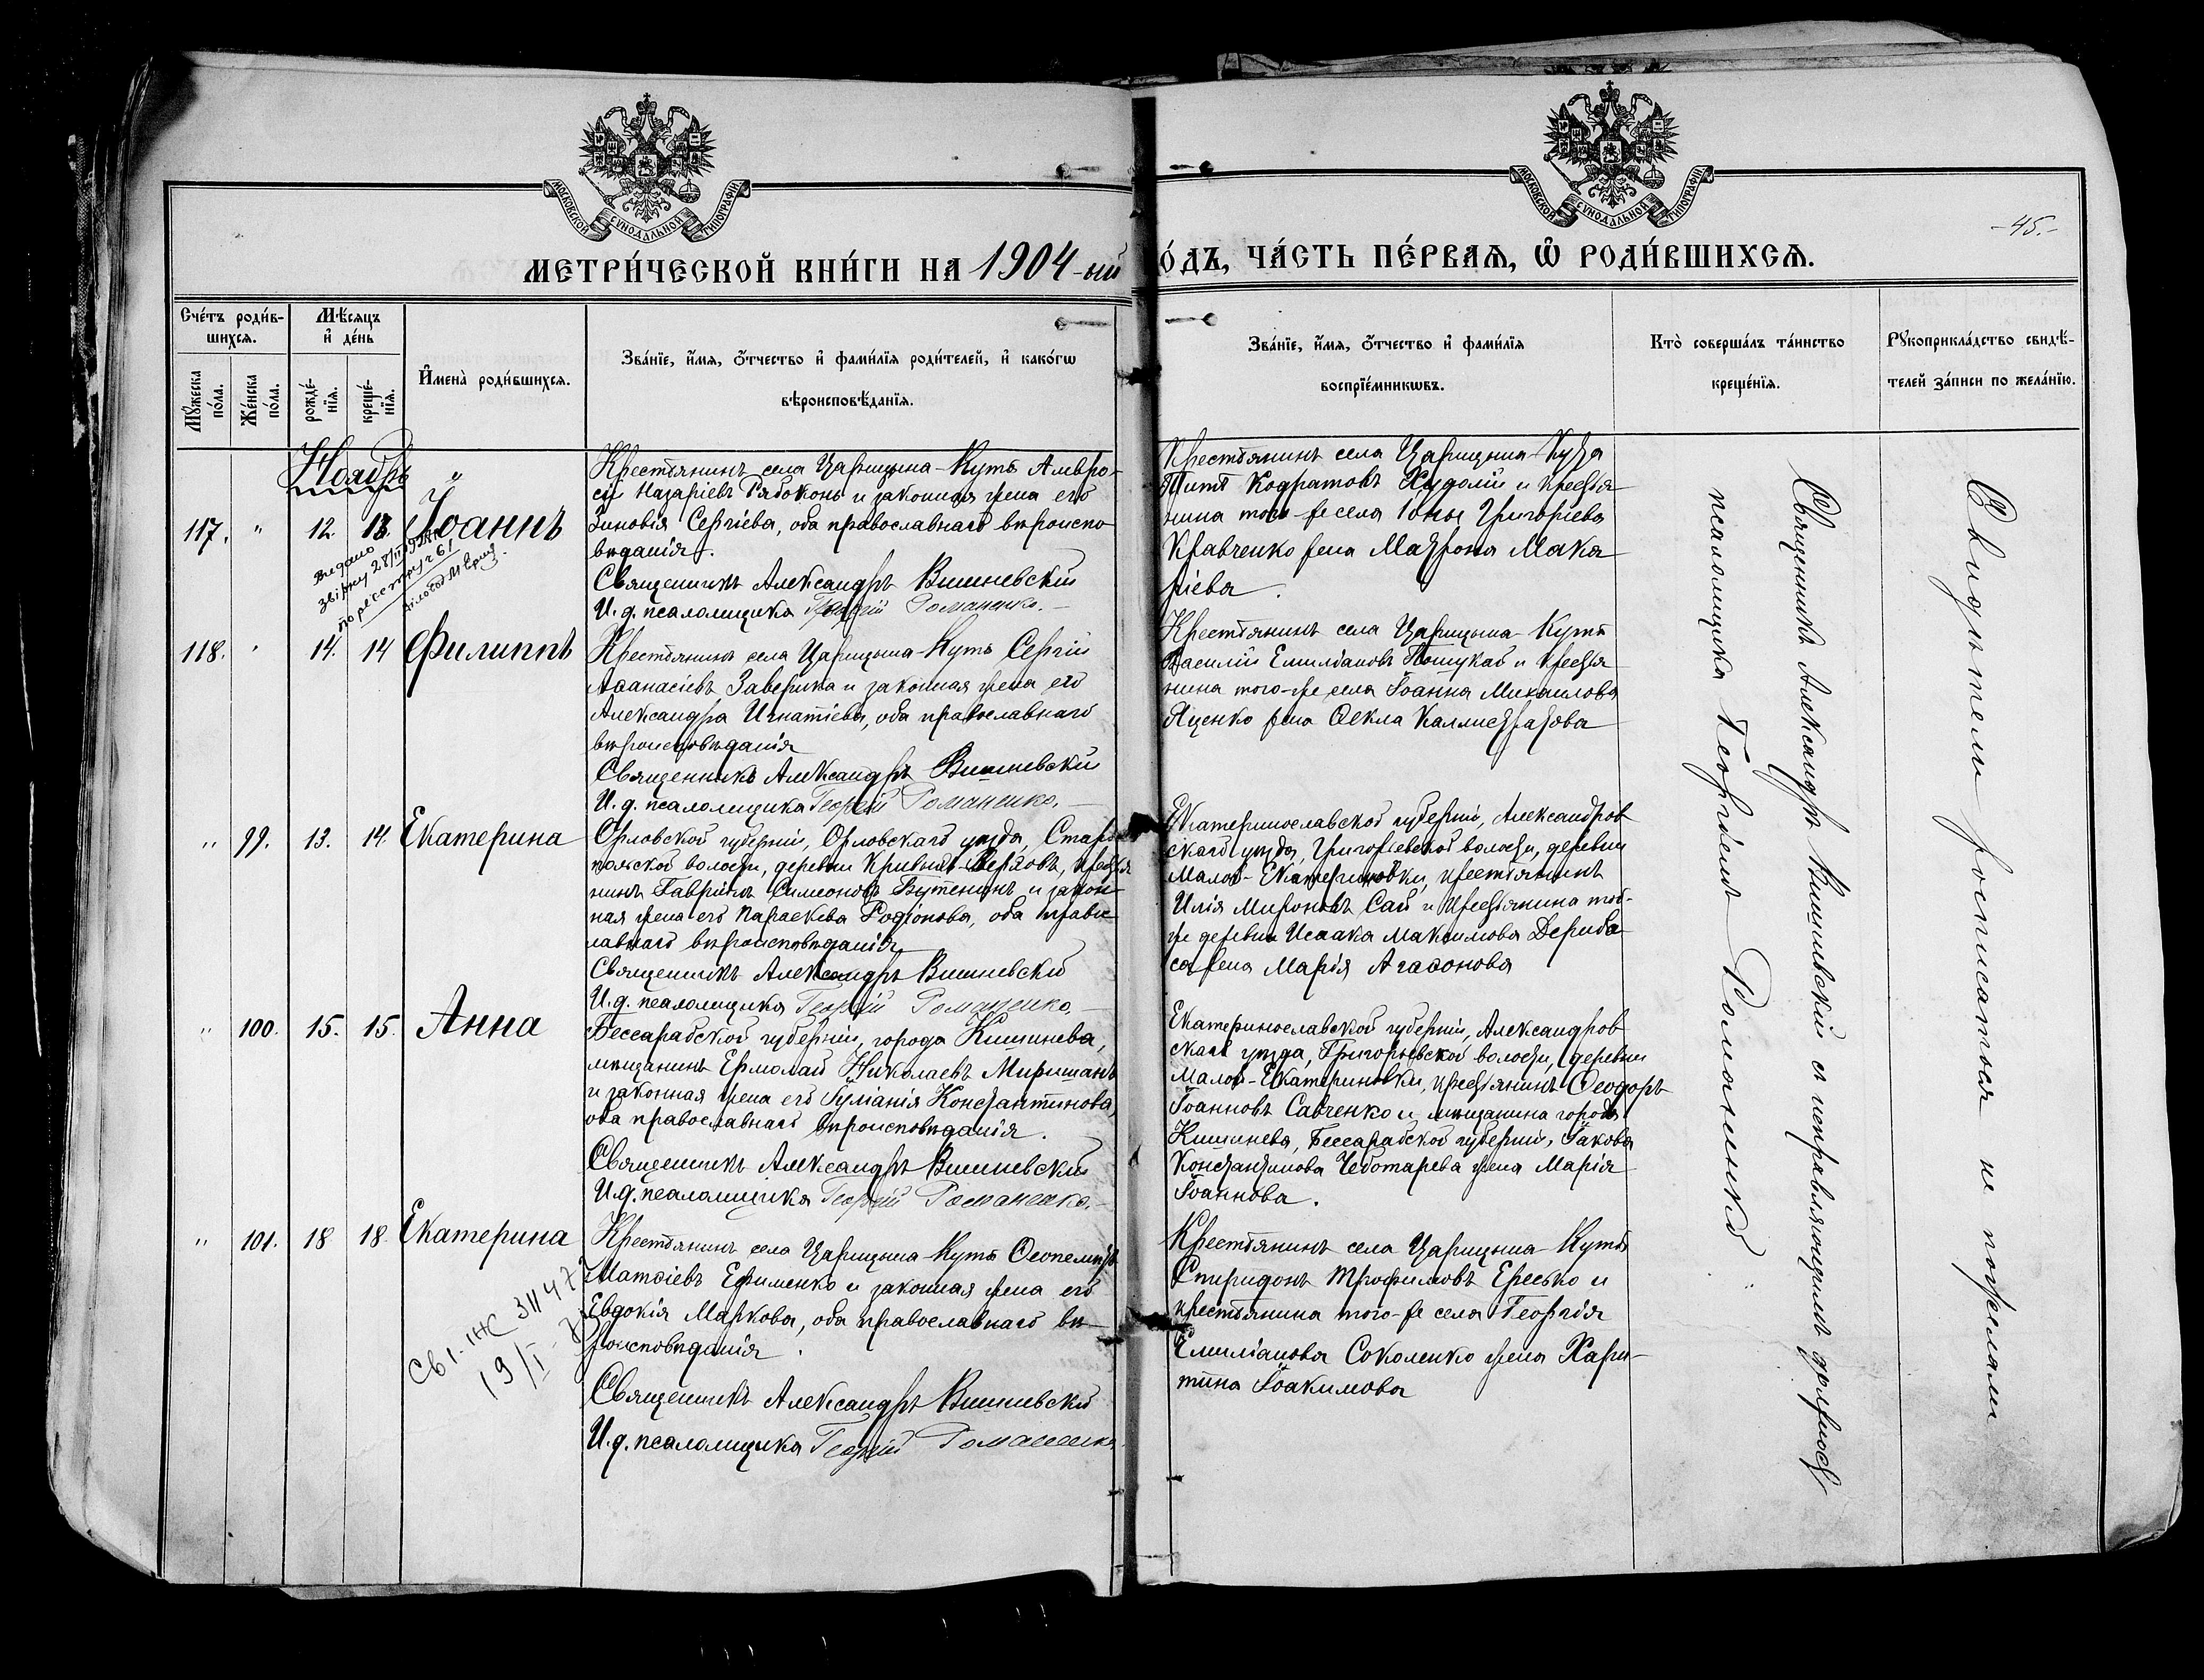 МОСКОВСКОЙ СѴНОДАЛЬНОЙ ТИПОГРАФІИ
МОСКОВСКОЙ СѴНОДАЛЬНОЙ ТИПОГРАФІИ
-45.-
МЕТРИ́ЧЕСКОЙ КНИ́ГИ НА 1904-ый
О́ДЪ, ЧА́СТЬ ПЕ́РВАѦ, Ѿ РОДИ́ВШИХСѦ.
Сче́тъ роди́в-
шихсѧ.
Мꙋ́жеска по́ла.
Же́нска по́ла.
Мѣ́сѧцъ
и҆ де́нь
рожде́-
нїѧ.
креще́-
нїѧ.
И҆мена̀ роди́вшихсѧ.
Зва́нїе, и҆́мѧ, ѻ҆́тчество и҆ фами́лїѧ роди́телей, и҆ како́гѡ
вѣроисповѣ́данїѧ.
Зва́нїе, и҆́мѧ, ѻ҆́тчество и҆ фами́лїѧ
воспрїе́мникѡвъ.
Кто̀ соверша́лъ та́инство
креще́нїѧ.
Рꙋкоприкла́дство свидѣ́-
телей за́писи по жела́нїю.
Ноябрь
117. " 12. 13. Іоаннъ
Крестьянинъ села Царицына-Кутъ Амвро-
сій Назаріевъ Рябоконь и законная жена его
Зиновія Сергіева, оба православнаго вѣроиспо-
вѣданія.
Священникъ Александръ Вишневскій
И. д. псаломщика Георгій Романенко.-
Крестьянинъ села Царицына-Кута
Титъ Кодратовъ Худолій и крестья-
нина того-же села Іоны Григоріева
Кравченко жена Матрона Мака-
ріева.
видано
звірку 28/II
по реестру 461
118. " 14. 14 Филиппъ
Крестьянинъ села Царицына-Кутъ Сергій
Аѳанасіевъ Заверюха и законная жена его
Александра Игнатіева, оба православнаго
вѣроисповѣданія
Священникъ Александръ Вишневскій
И. д. псаломщика Георгій Романенко.-
Крестьянинъ села Царицына-Кута
Василій Емиліановъ и крестья-
нина того-же села Іоанна Михаилова
Яценко жена Ѳекла Каллистратова
" 99. 13. 14. Екатерина
Орловской губерніи, Орловскаго уѣзда,
волости, деревни Кривыхъ-Верховъ, крестья-
нинъ Гавріилъ Симеоновъ и закон-
ная жена его Параскева Родіонова, оба право-
славнаго вѣроисповѣданія
Священникъ Александръ Вишневскій
И. д. псаломщика Георгій Романенко.-
Екатеринославской губерніи, Александров-
скаго уѣзда, Григорьевской волости, деревни
Малой-Екатериновки, крестьянинъ
Илія Мироновъ Сай и крестьянина той-
же деревни Исаака Максимова Дериба-
са жена Марія Агаѳонова
" 100. 15. 15. Анна
Бессарабской губерніи, города Кишинева,
мѣщанинъ Ермолай Николаевъ Миришанъ
и законная жена его Іуліанія Константинова,
оба православнаго вѣроисповѣданія.
Священникъ Александръ Вишневскій
И. д. псаломщика Георгій Романенко.-
Екатеринославской губерніи, Александров-
скаго уѣзда, Григорьевской волости, деревни
Малой-Екатериновки, крестьянинъ Ѳеодоръ
Іоанновъ Савченко и мѣщанина города
Кишинева, Бессарабской губерніи, Іакова
Константинова Чеботарева жена Марія
Іоаннова.
" 101. 18 18 Екатерина
Крестьянинъ села Царицына-Кутъ Ѳеопемптъ
Матѳіевъ Ефименко и законная жена его
Евдокія Маркова, оба православнаго вѣ-
роисповѣданія.
Священникъ Александръ Вишневскій
И. д. псаломщика Георгій Романенко.
Крестьянинъ села Царицына-Кута
Спиридонъ Трофимовъ Ересько и
крестьянина того-же села Георгія
Емиліанова Соколенко жена Хари-
тина Іоакимова
19/I
Священникъ Александръ Вишневскій съ исправляющимъ должность
псаломщика Георгіемъ Романенко.
Свидѣтели росписаться не пожелали